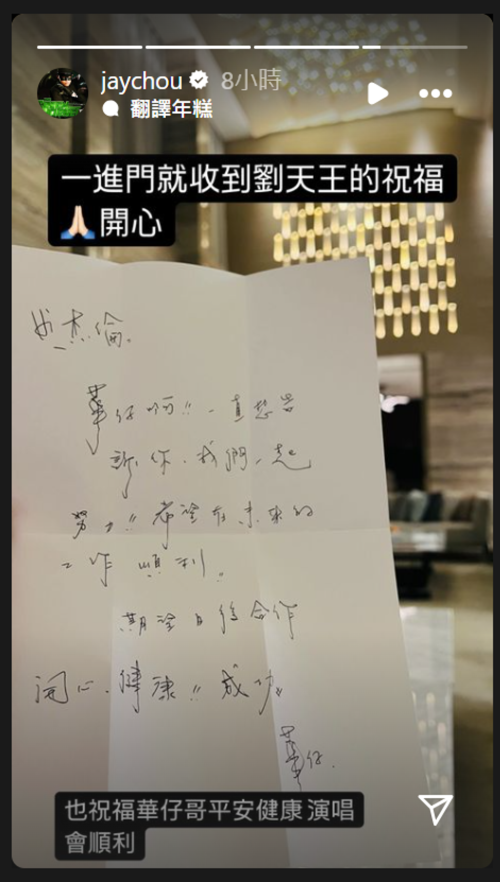 jaychou 8小時
翻譯年糕
一進門就收到劉天王的祝福
🙏🏻開心
杰倫。
華仔啊!! 一直想告
訴你、我們一起
努力!! 希望在未來的
工作 順利!!
期望日後合作
開心、健康!! 成功!!
華仔.
也祝福華仔哥平安健康 演唱
會順利